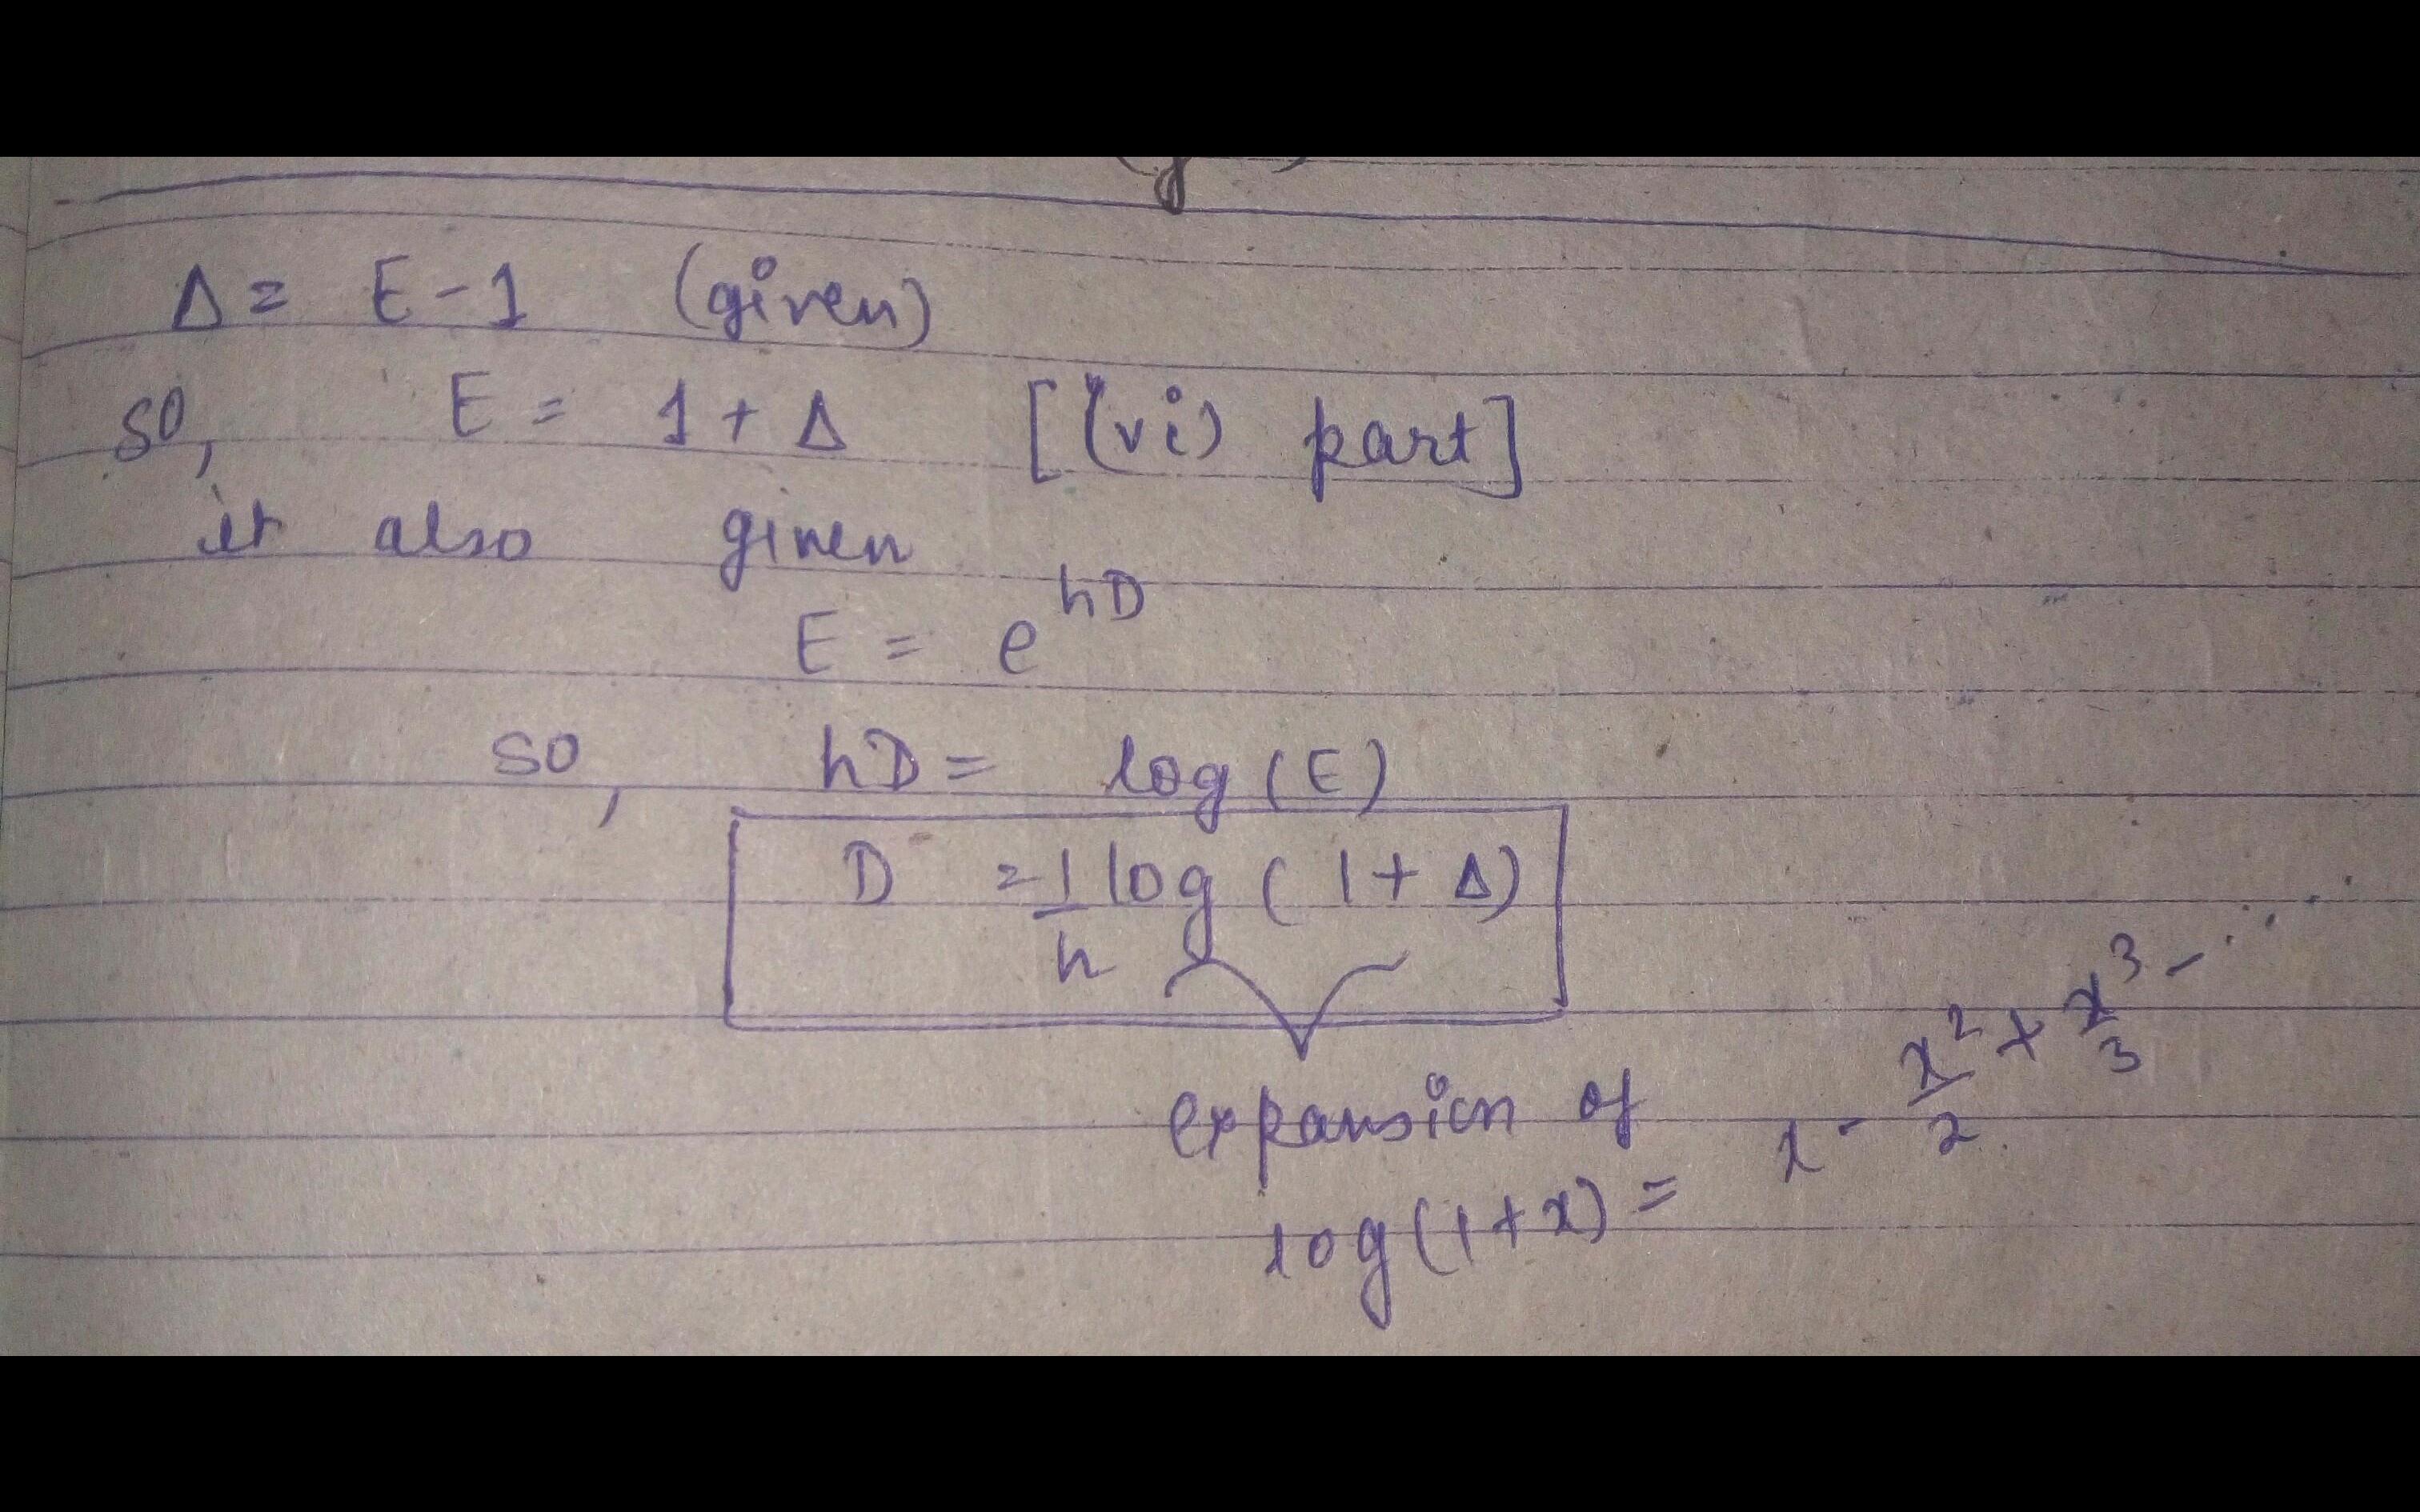 Δ = E - 1 (given)
so, E = 1 + Δ [(vi) part]
it also given
E = e^hD
so, hD = log (E)
D = 1/h log ( 1 + Δ)
expansion of
log (1 + x) = x - x²/2 + x³/3 - .....